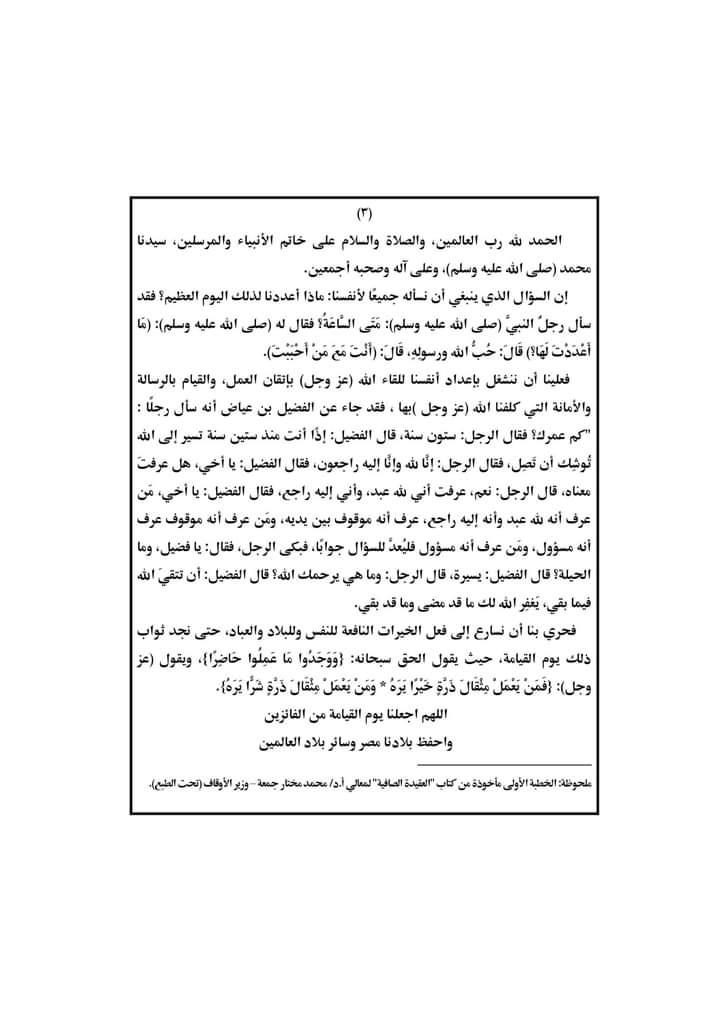 (٣)
الحمد لله رب العالمين، والصلاة والسلام على خاتم الأنبياء والمرسلين، سيدنا
محمد (صلى الله عليه وسلم)، وعلى آله وصحبه أجمعين.
إن السؤال الذي ينبغي أن نسأله جميعًا لأنفسنا: ماذا أعددنا لذلك اليوم العظيم؟ فقد
سأل رجلٌ النبيَّ (صلى الله عليه وسلم): مَتَى السَّاعَةُ؟ فقال له (صلى الله عليه وسلم): (مَا
أَعْدَدْتَ لَهَا؟) قَالَ: حُبُّ الله ورسولِهِ، قَالَ: (أَنْتَ مَعَ مَنْ أَحْبَبْتَ).
فعلينا أن ننشغل بإعداد أنفسنا للقاء الله (عز وجل) بإتقان العمل، والقيام بالرسالة
والأمانة التي كلفنا الله (عز وجل )بها ، فقد جاء عن الفضيل بن عياض أنه سأل رجلًا :
"كم عمرك؟ فقال الرجل: ستون سنة، قال الفضيل: إذًا أنت منذ ستين سنة تسير إلى الله
تُوشِك أن تَصِل، فقال الرجل: إنَّا لله وإنَّا إليه راجعون، فقال الفضيل: يا أخي، هل عرفتَ
معناه، قال الرجل: نعم، عرفت أني لله عبد، وأني إليه راجع، فقال الفضيل: يا أخي، مَن
عرف أنه لله عبد وأنه إليه راجع، عرف أنه موقوف بين يديه، ومَن عرف أنه موقوف عرف
أنه مسؤول، ومَن عرف أنه مسؤول فليُعدَّ للسؤال جوابًا، فبكى الرجل، فقال: يا فضيل، وما
الحيلة؟ قال الفضيل: يسيرة، قال الرجل: وما هي يرحمك الله؟ قال الفضيل: أن تتقيَ الله
فيما بقي، يَغفِر الله لك ما قد مضى وما قد بقي.
فحري بنا أن نسارع إلى فعل الخيرات النافعة للنفس وللبلاد والعباد، حتى نجد ثواب
ذلك يوم القيامة، حيث يقول الحق سبحانه: {وَوَجَدُوا مَا عَمِلُوا حَاضِرًا}، ويقول (عز
وجل): {فَمَنْ يَعْمَلْ مِثْقَالَ ذَرَّةٍ خَيْرًا يَرَهُ * وَمَنْ يَعْمَلْ مِثْقَالَ ذَرَّةٍ شَرًّا يَرَهُ}.
اللهم اجعلنا يوم القيامة من الفائزين
واحفظ بلادنا مصر وسائر بلاد العالمين
ملحوظة: الخطبة الأولى مأخوذة من كتاب "العقيدة الصافية" لمعالي أ.د/ محمد مختار جمعة – وزير الأوقاف (تحت الطبع).